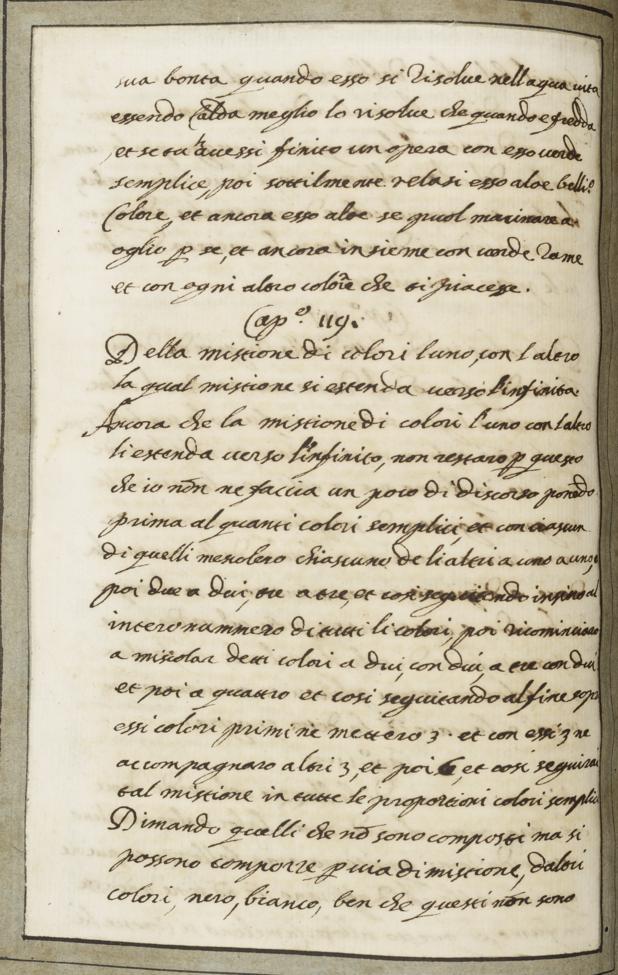 sua bonta quando esso si risolue nell aqua uita
essendo calda meglio lo risolue che quando e fredda
et se tu hauessi finito un opera con esso uerde
semplice, poi sottilmente velasi esso aloe belliº
Colore, et ancora esso aloe se puol macinare a
oglio p se, et ancora insieme con uerde rame
et con ogni altro colore che ti piacesse.
Capº. 119.
Della mistione di colori l uno, con l altro
la qual mistione si estenda uerso l'infinita
Ancora che la mistione di colori l'uno con laltro
si estenda uerso l'infinito, non restaro p questo
che io nōn ne faccia un poco di discorso ponēdo
prima al quanti colori semplici, et con ciascun
di quelli mescolero chiascuno de li altri a uno a uno,
poi due a dui, tre a tre, et cosi seguitando insino al
intero nummero di tutti li colori, poi ricominciaro
a miscolar detti colori a dui, con dui, a tre con dui
et poi a quattro et cosi seguitando al fine sopr
essi colori primi ne mettero 3. et con essi 3 ne
accompagnaro altri 3, et poi 6, et cosi seguirai
tal mistione in tutte le proportioni colori semplici
Dimando quelli che nō sono composti ma si
possono comporre p uia di mistione, daltri
colori, nero, bianco, ben che questi nōn sono